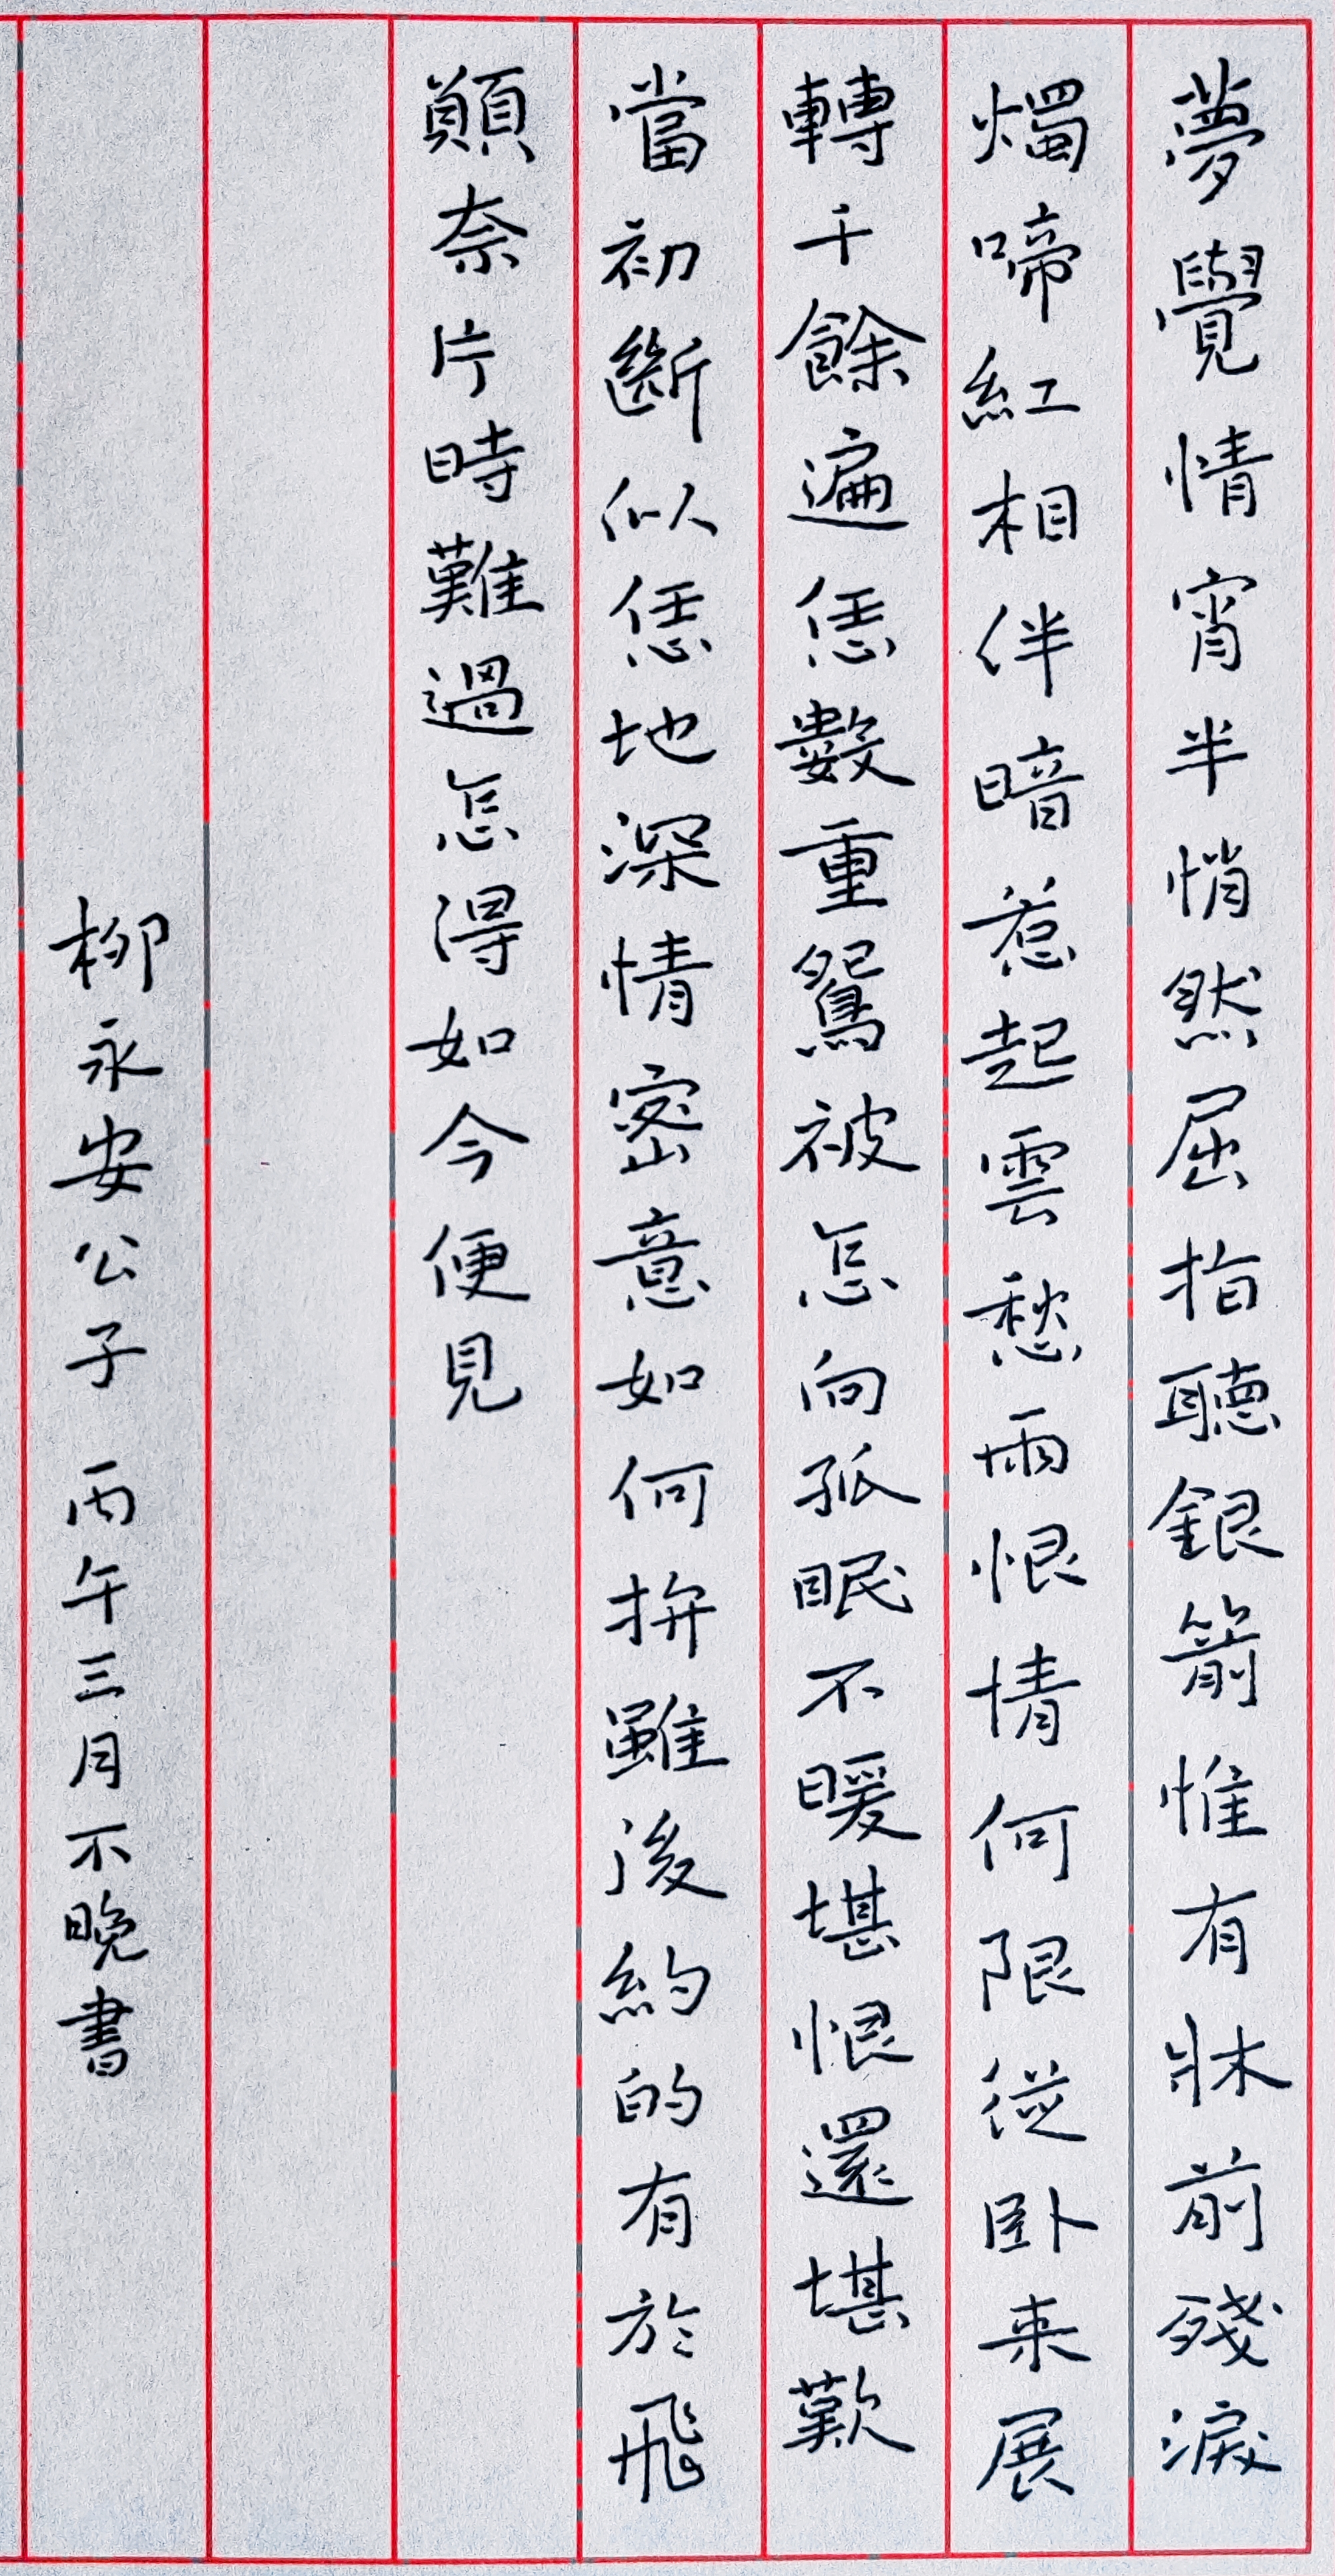 夢覺情宵半悄然屈指聽銀箭惟有牀前殘淚
燭啼紅相伴暗惹起雲愁雨恨情何限從卧来展
轉千餘遍恁數重鴛被怎向孤眠不暖堪恨還堪歎
當初斷似恁地深情密意如何拚雖後約的有於飛
願奈片時難過怎得如今便見
柳永安公子 丙午三月不晚書